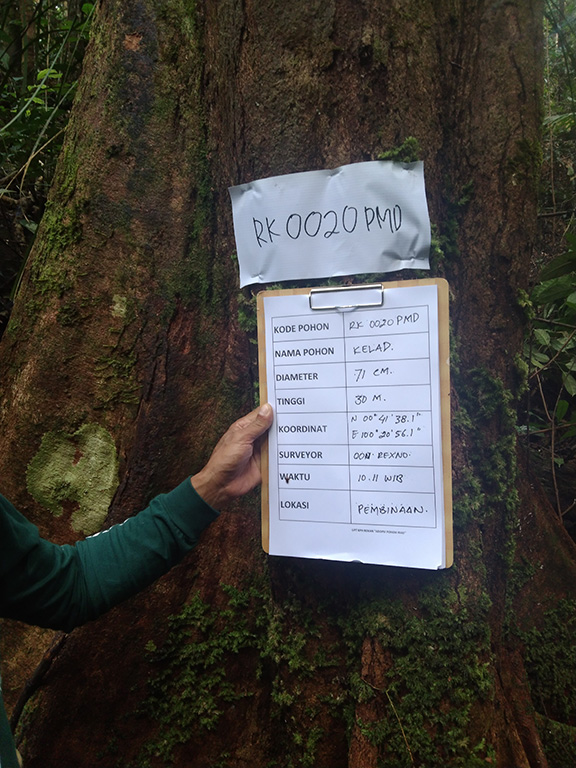 RK 0020 PMD
KODE POHON RK 0020 PMD
NAMA POHON KELAD.
DIAMETER 71 CM.
TINGGI 30 M.
KOORDINAT N 00° 41' 38.1"
E 100° 20' 56.1"
SURVEYOR OON. REXNO.
WAKTU 10.11 WIB
LOKASI PEMBINAAN.